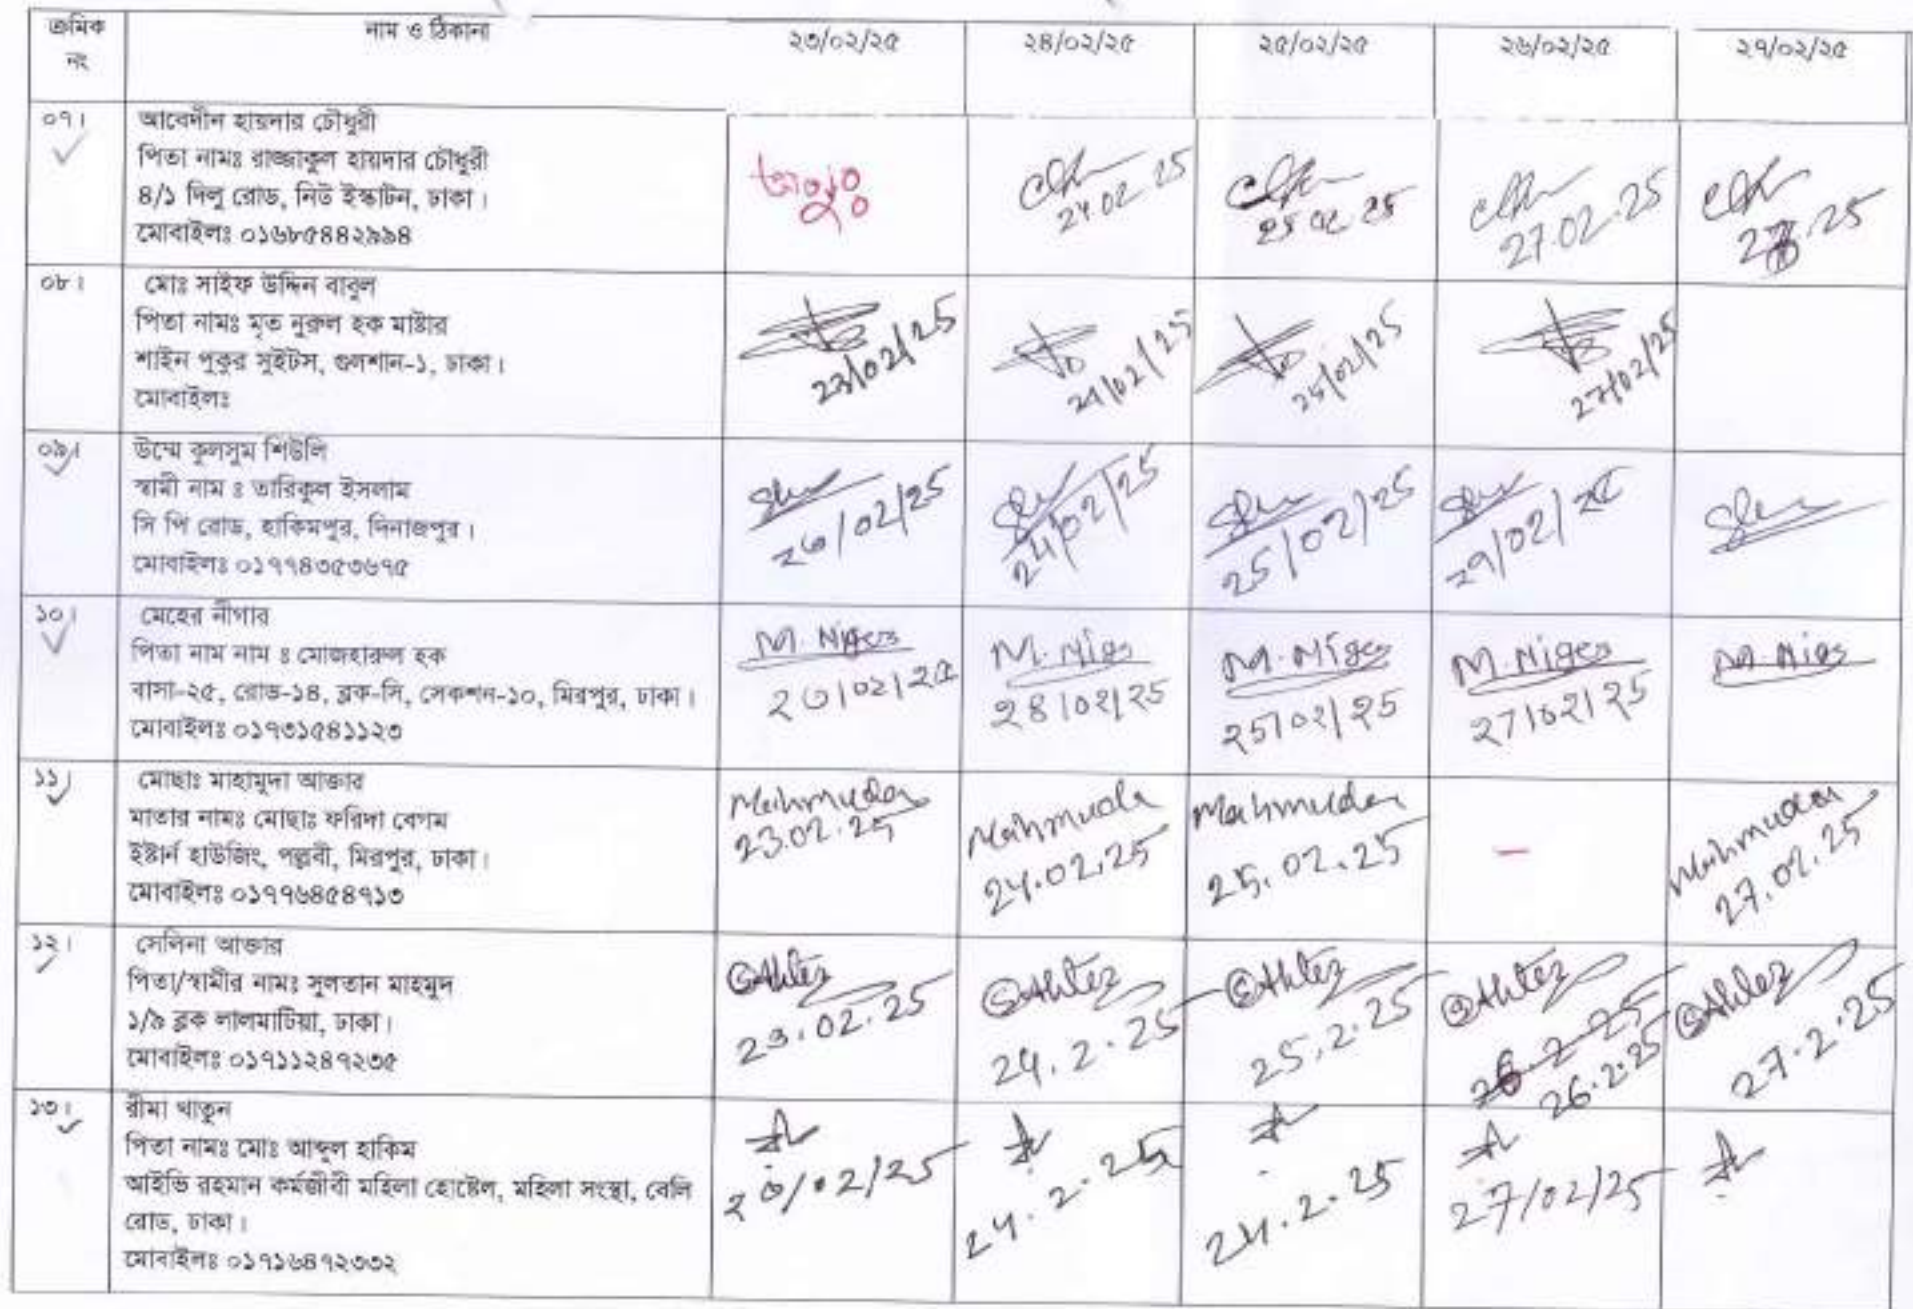 ক্রমিক নং
নাম ও ঠিকানা
২৩/০২/২৫
২৪/০২/২৫
২৫/০২/২৫
২৬/০২/২৫
২৭/০২/২৫
০৭।
আবেদীন হায়দার চৌধুরী
পিতা নামঃ রাজ্জাকুল হায়দার চৌধুরী
৪/১ দিলু রোড, নিউ ইস্কাটন, ঢাকা।
মোবাইলঃ ০১৬৮৫৪৪২৯৯৪
24.02 25
25 02 25
27.02.25
25
০৮।
মোঃ সাইফ উদ্দিন বাবুল
পিতা নামঃ মৃত নুরুল হক মাষ্টার
শাইন পুকুর সুইটস, গুলশান-১, ঢাকা।
মোবাইলঃ
23/02/25
24/02/25
25/02/25
27/02/25
০৯।
উম্মে কুলসুম শিউলি
স্বামী নাম ঃ তারিকুল ইসলাম
সি পি রোড, হাকিমপুর, দিনাজপুর।
মোবাইলঃ ০১৭৭৪৩৫৩৬৭৫
২৩/02/25
24/02/25
25/02/25
২৭/02/২৫
১০।
মেহের নীগার
পিতা নাম নাম ঃ মোজহারুল হক
বাসা-২৫, রোড-১৪, ব্লক-সি, সেকশন-১০, মিরপুর, ঢাকা।
মোবাইলঃ ০১৭৩১৫৪১১২৩
M. Nigar
২৩/02/২৫
M. Nigar
২৪/০২/25
M. Nigar
25/02/25
M. Nigar
27/02/25
M. Nigar
১১।
মোছাঃ মাহামুদা আক্তার
মাতার নামঃ মোছাঃ ফরিদা বেগম
ইষ্টার্ন হাউজিং, পল্লবী, মিরপুর, ঢাকা।
মোবাইলঃ ০১৭৭৬৪৫৪৭১৩
Mahmuda
23.02.25
Mahmuda
24.02.25
Mahmuda
25.02.25
—
Mahmuda
27.02.25
১২।
সেলিনা আক্তার
পিতা/স্বামীর নামঃ সুলতান মাহমুদ
১/৯ ব্লক লালমাটিয়া, ঢাকা।
মোবাইলঃ ০১৭১১২৪৭২৩৫
SAkter
23.02.25
SAkter
24.2.25
SAkter
25.2.25
SAkter
26.2.25
SAkter
27.2.25
১৩।
রীমা খাতুন
পিতা নামঃ মোঃ আব্দুল হাকিম
আইভি রহমান কর্মজীবী মহিলা হোষ্টেল, মহিলা সংস্থা, বেলি
রোড, ঢাকা।
মোবাইলঃ ০১৭১৬৪৭২৩৩২
২৩/০2/25
24.2.25
24.2.25
27/02/25